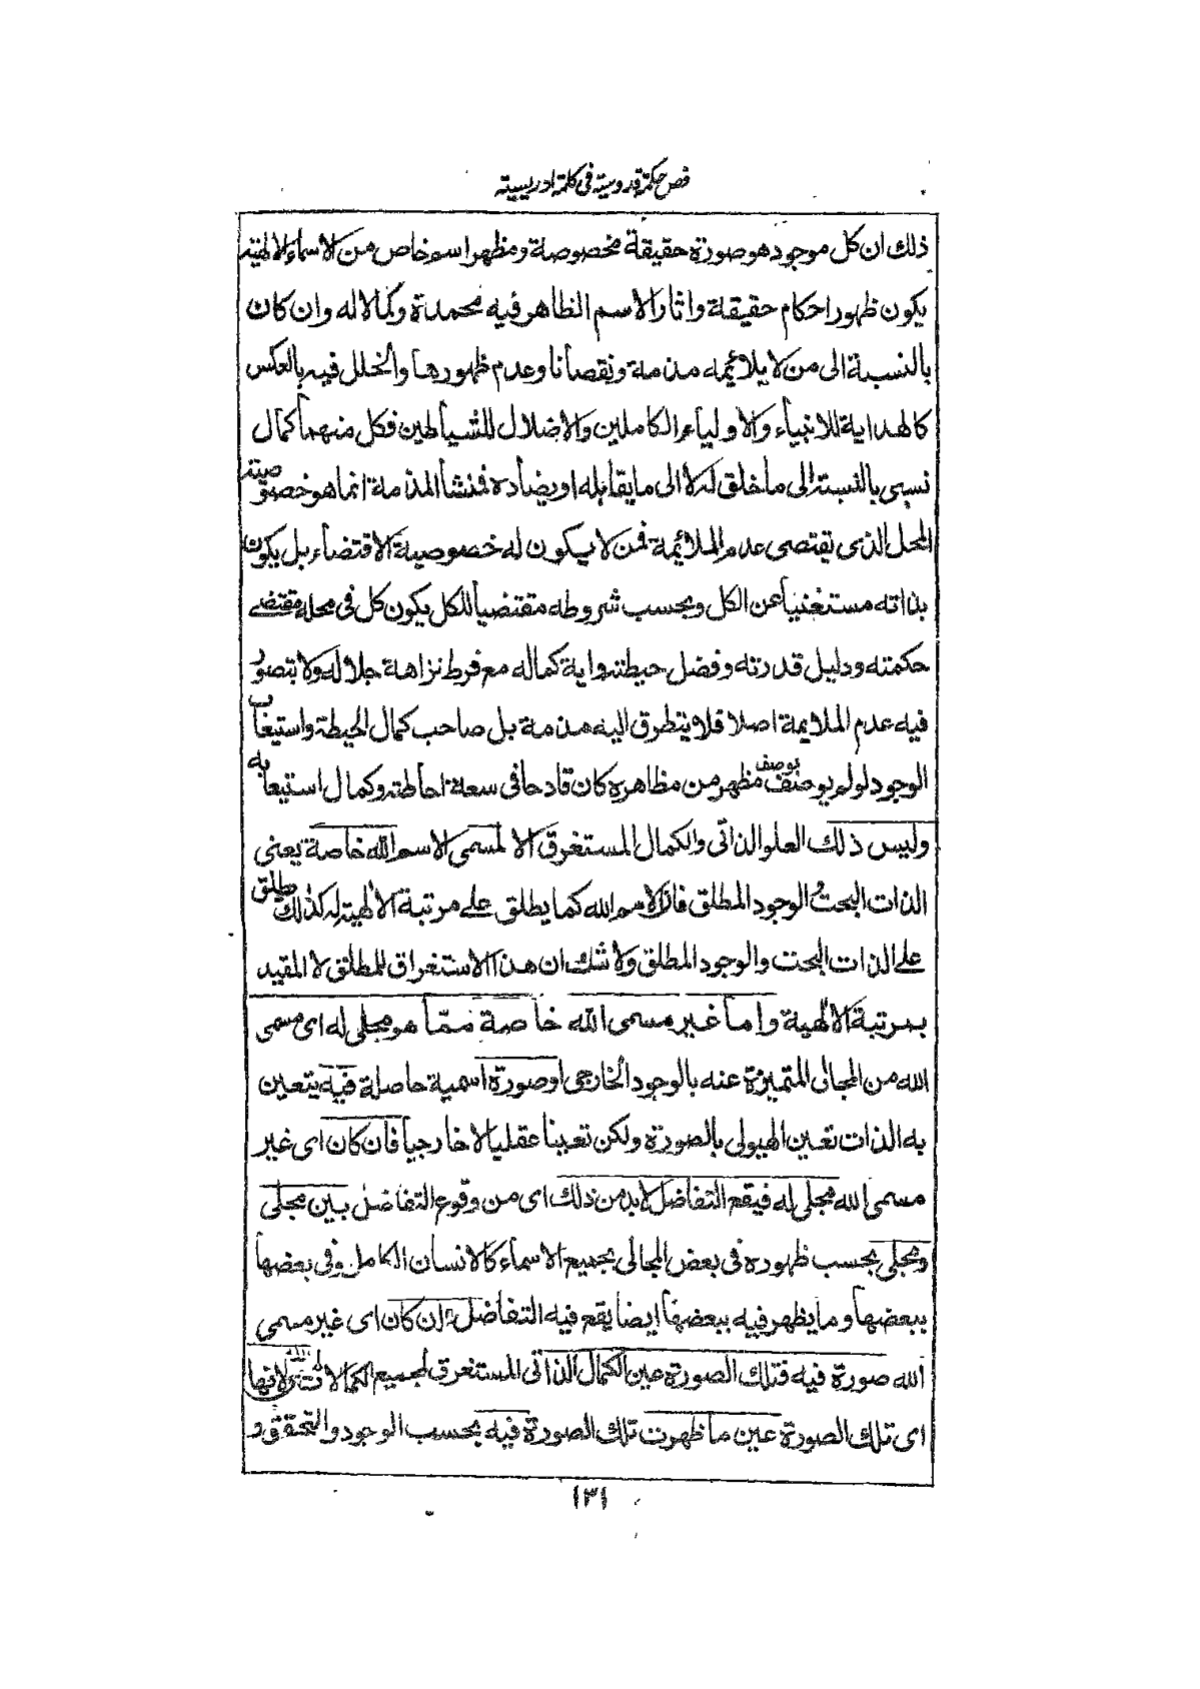 فص حكمة قدوسية فى كلمة ادريسية
ذلك ان كل موجود هو صورة حقيقة مخصوصة ومظهر اسم خاص من الاسماء الالهية
يكون ظهور احكام حقيقة واثار الاسم الظاهر فيه محمدة وكمالا له وان كان
بالنسبة الى من لا يلائمه مذمة ونقصانا وعدم ظهورها والخلل فيه بالعكس
كالهداية للانبياء والاولياء الكاملين والاضلال للشياطين فكل منهما كمال
نسبى بالنسبة الى ما خلق له لا الى ما يقابله او يضاده فمنشأ المذمة انما هو خصوصية
المحل الذى يقتضى عدم الملائمة فمن لا يكون له خصوصية الاقتضاء بل يكون
بذاته مستغنيا عن الكل وبحسب شروطه مقتضيا للكل يكون كل فى محله مقتضى
حكمته ودليل قدرته وفضل حيطته واية كماله مع فرط نزاهة جلاله ولا يتصور
فيه عدم الملايمة اصلا فلا يتطرق اليه مذمة بل صاحب كمال الحيطة واستيعاب
الوجود لو لم يوصف بوصف مظهر من مظاهره كان قادحا فى سعة احاطته وكمال استيعابه
وليس ذلك العلو الذاتى والكمال المستغرق الا لمسمى الاسم الله خاصة يعنى
الذات البحت والوجود المطلق فان الاسم الله كما يطلق على مرتبة الالهية له كذلك يطلق
على الذات البحت والوجود المطلق ولا شك ان هذا الاستغراق للمطلق لا المقيد
بمرتبة الالهية واما غير مسمى الله خاصة مما هو مجلى له اى مسمى
الله من المجالى المتميزة عنه بالوجود الخارجى او صورة اسمية حاصلة فيه يتعين
به الذات تعين الهيولى بالصورة ولكن تعينا عقليا لا خارجيا فان كان اى غير
مسمى الله مجلى له فيقع التفاضل لابد من ذلك اى من وقوع التفاضل بين مجلى
ومجلى بحسب ظهوره فى بعض المجالى بجميع الاسماء كالانسان الكامل وفى بعضها
ببعضها وما يظهر فيه ببعضها ايضا يقع فيه التفاضل وان كان اى غير مسمى
الله صورة فيه فتلك الصورة عين الكمال الذاتى المستغرق لجميع الكمالات لانها
اى تلك الصورة عين ما ظهرت تلك الصورة فيه بحسب الوجود والتحقق و
١٣١